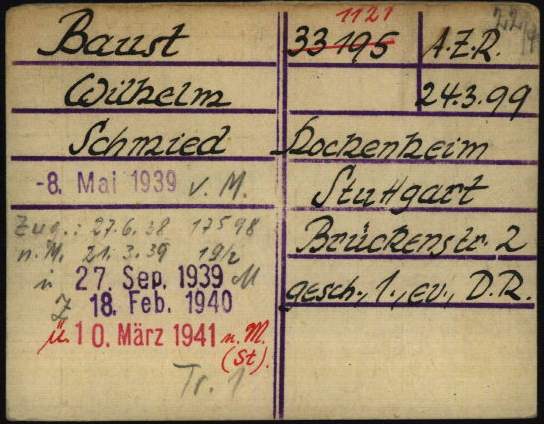 Baust
Wilhelm
Schmied
-8. Mai 1939 v. M.
Zug.: 27.6.38 17598
n. M. 21.3.39 19/2
ü 27. Sep. 1939 M
Z 18. Feb. 1940
ü. 10. März 1941 n. M.
(St).
Tr. 1
1121
33195 A.Z.R.
24.3.99
Hockenheim
Stuttgart
Brückenstr. 2
gesch., 1., ev., D.R.